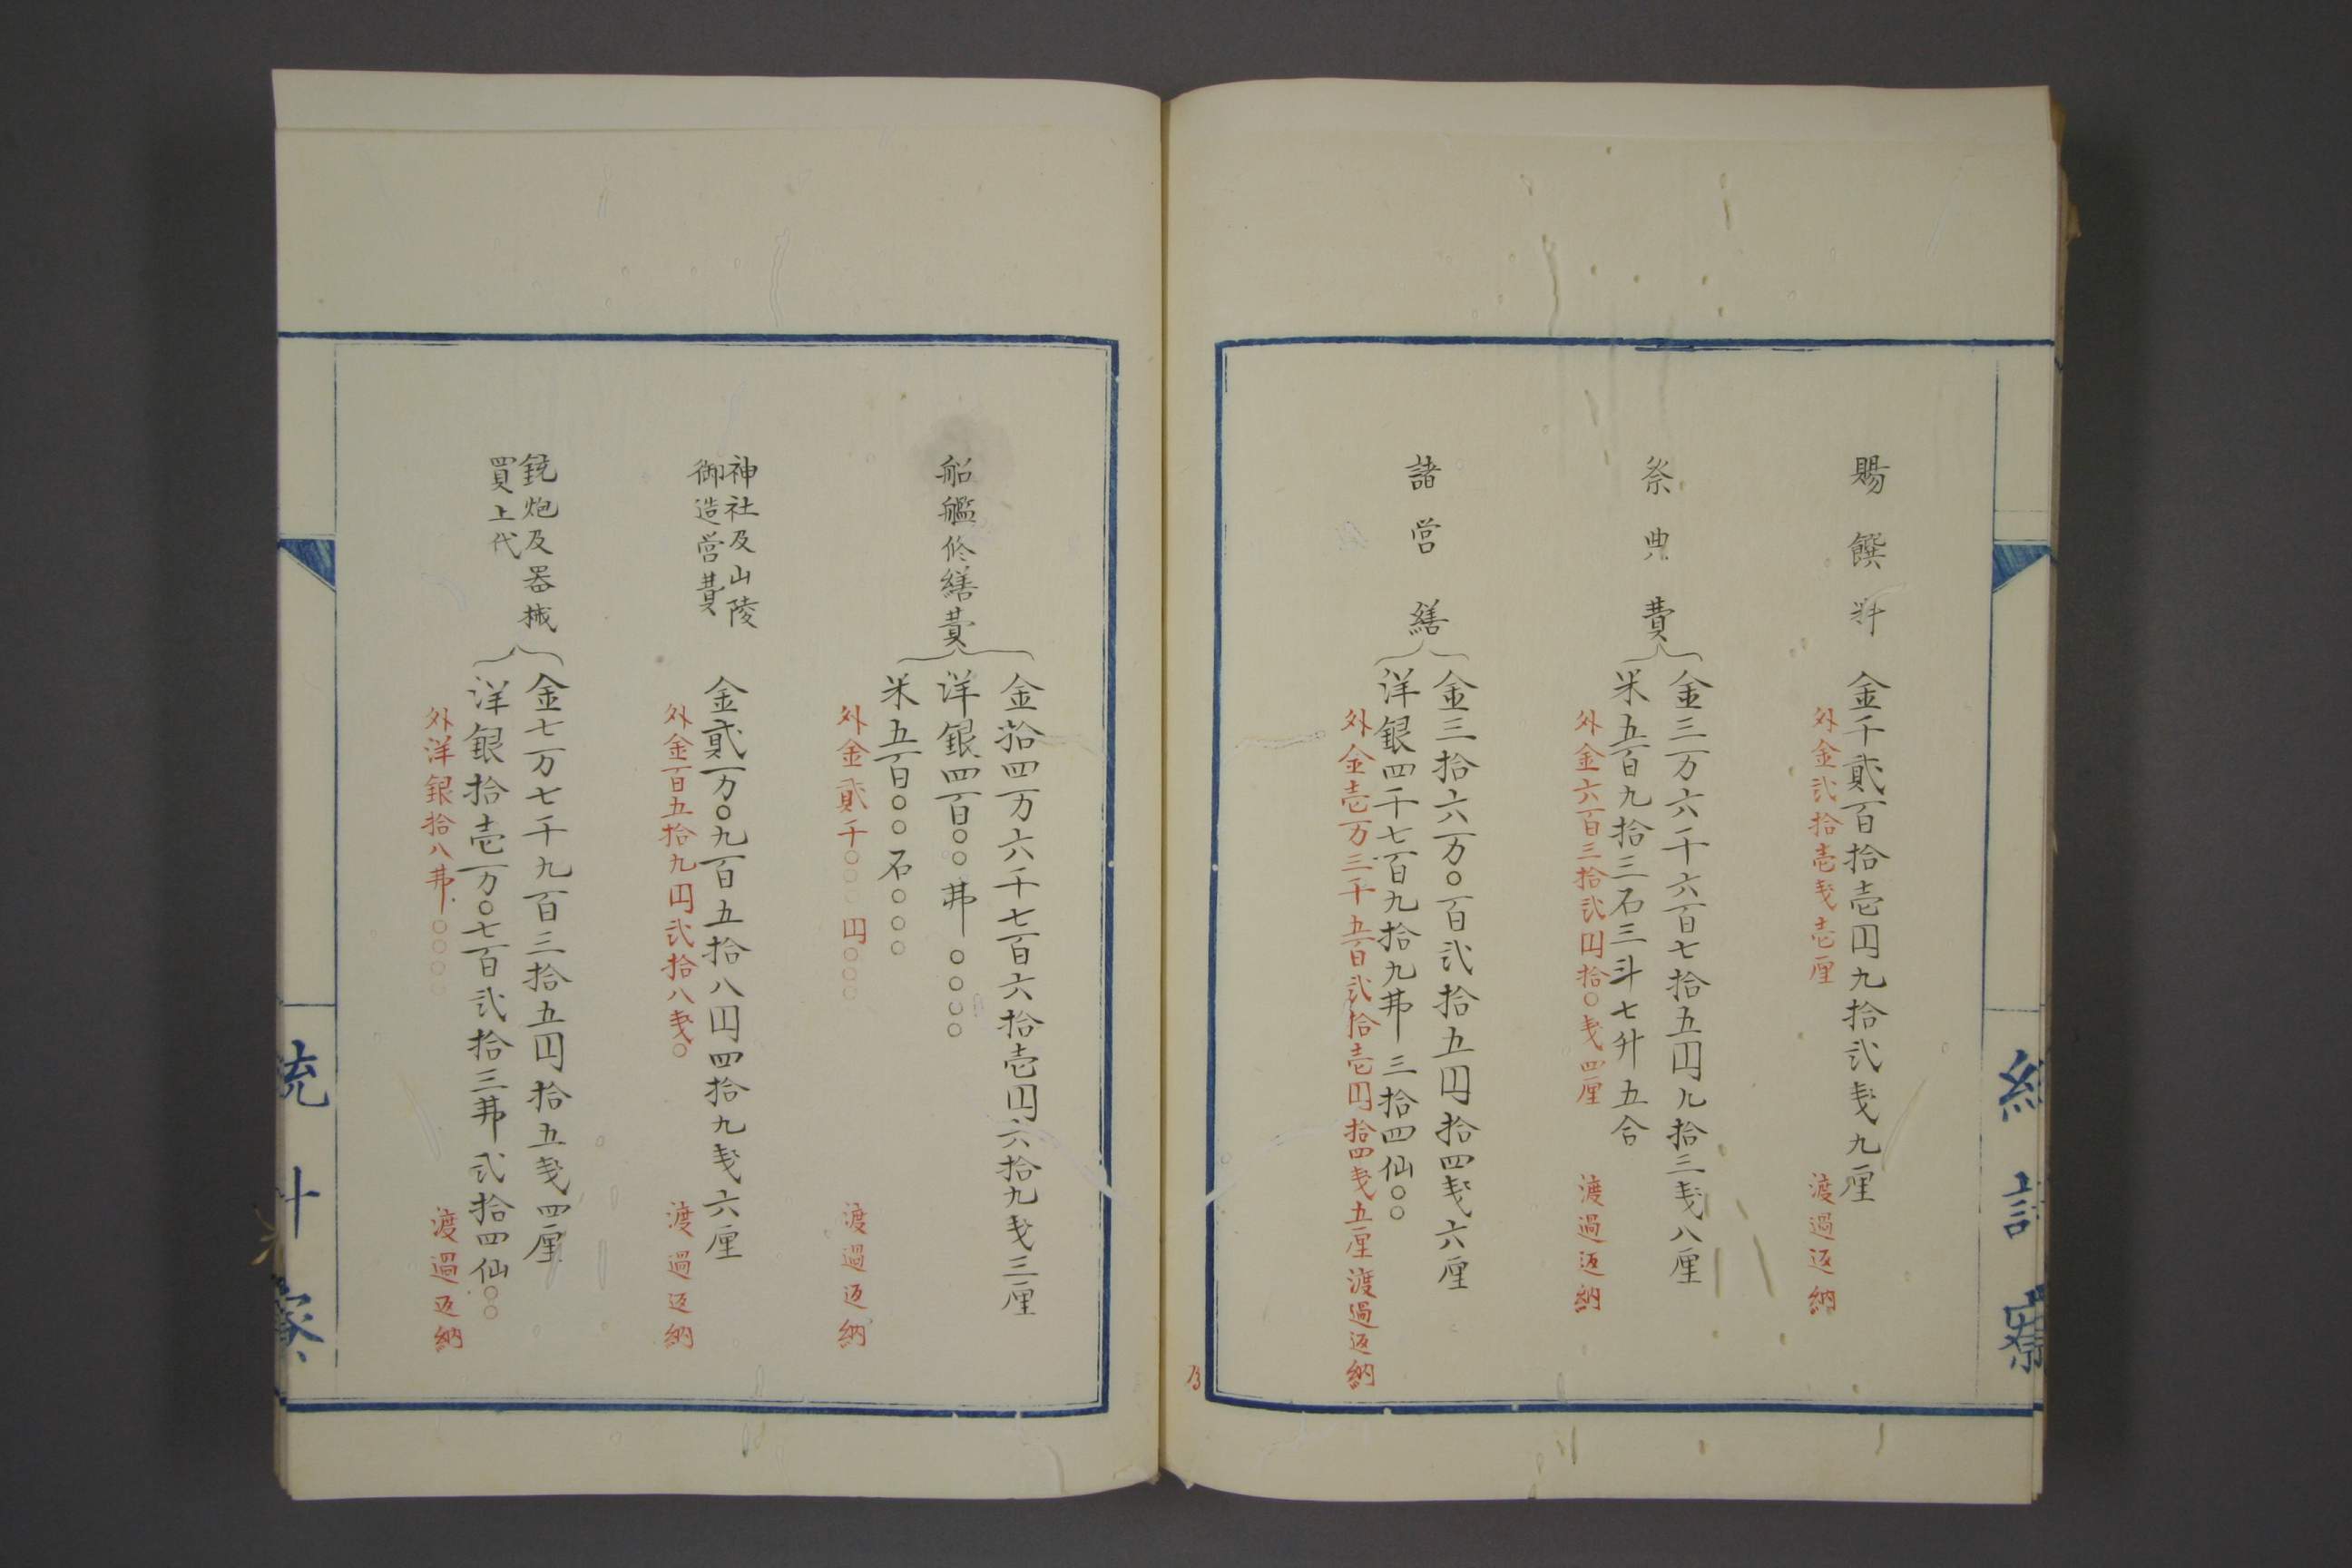 賜饌料
金千貳百拾壱円九拾弐戔九厘
外金弐拾壱戔壱厘 渡過返納
祭典費
金三万六千六百七拾五円九拾三戔八厘
米五百九拾三石三斗七升五合
外金六百三拾弐円拾〇戔四厘 渡過返納
諸営繕
金三拾六万〇百弐拾五円拾四戔六厘
洋銀四千七百九拾九弗三拾四仙〇〇
外金壱万三千五百弐拾壱円拾四戔五厘 渡過返納
船艦修繕費
金拾四万六千七百六拾壱円六拾九戔三厘
洋銀四百〇〇弗〇〇〇〇
米五百〇〇石〇〇〇
外金貳千〇〇〇円〇〇〇 渡過返納
神社及山陵
御造営費
金貳万〇九百五拾八円四拾九戔六厘
外金百五拾九円弐拾八戔〇 渡過返納
銃炮及器械
買上代
金七万七千九百三拾五円拾五戔四厘
洋銀拾壱万〇七百弐拾三弗弐拾四仙〇〇
外洋銀拾八弗〇〇〇〇 渡過返納
統計寮